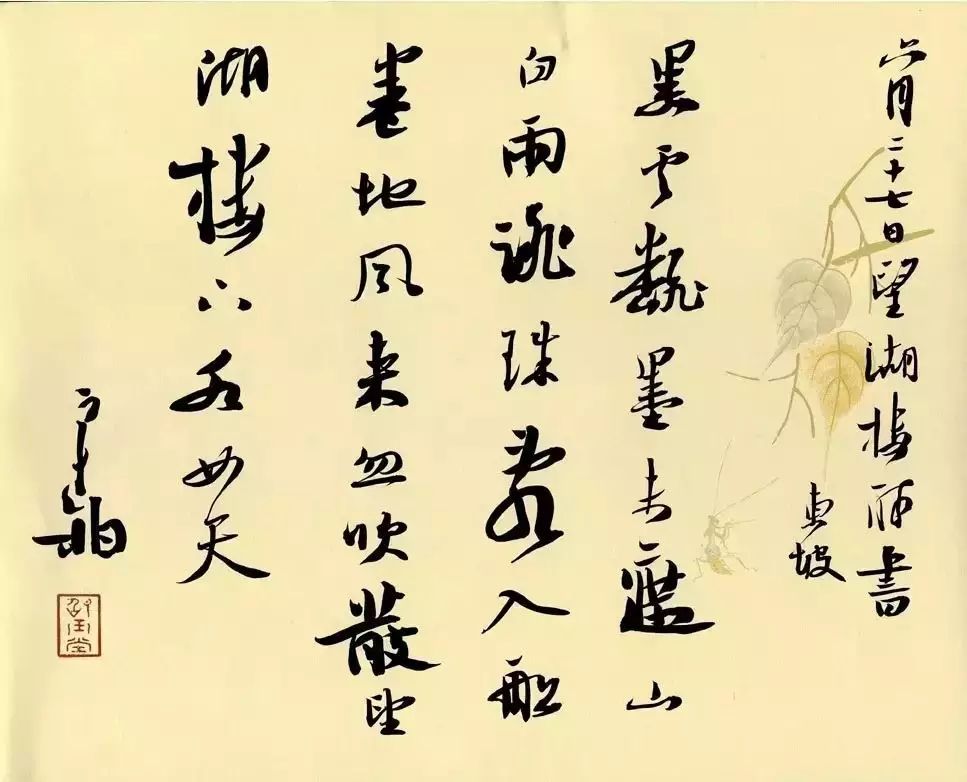 六月二十七日望湖樓醉書
東坡
黑云翻墨未遮山
白雨跳珠亂入船
卷地風来忽吹散望
湖樓下水如天